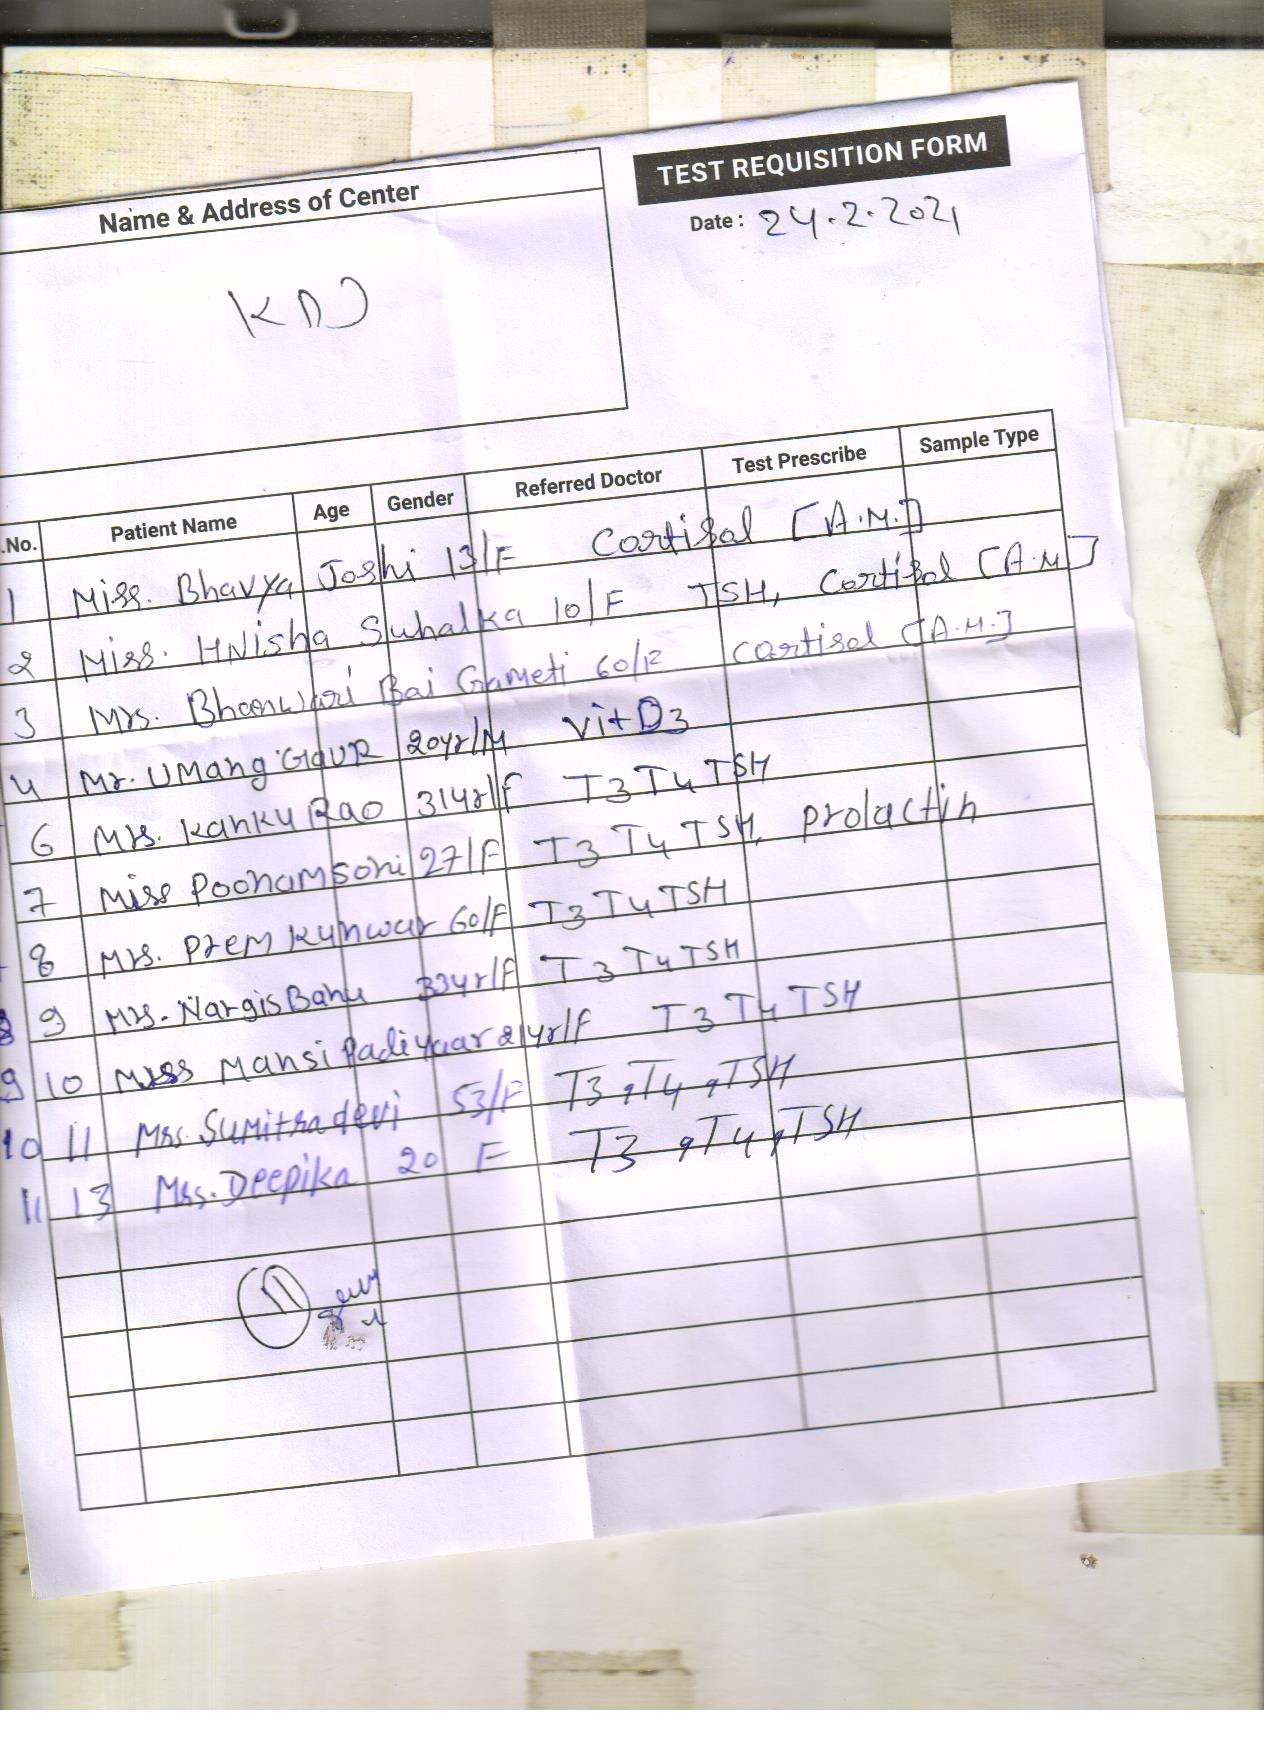 Name & Address of Center
TEST REQUISITION FORM
Date : 24.2.2021
KDJ
.No. Patient Name Age Gender Referred Doctor Test Prescribe Sample Type
1 Miss. Bhavya Joshi 13/F Cortisol [A.M.]
2 Miss. HNisha Suhalka 10/F TSH, Cortisol [A.M.]
3 Mrs. Bhanwari Bai Gameti 60/F cortisol [A.M.]
4 Mr. Umang Gaur 20yr/M Vit D3
6 Mrs. Kanku Rao 31yr/F T3 T4 TSH
7 Miss Poonam Soni 27/F T3 T4 TSH, prolactin
8 Mrs. Prem Kunwar 60/F T3 T4 TSH
8 9 Mrs. Nargis Banu 33yr/F T3 T4 TSH
9 10 Miss Mansi Padiyaar 21yr/F T3 T4 TSH
10 11 Mrs. Sumitra devi 53/F T3, T4, TSH
11 13 Mrs. Deepika 20 F T3, T4, TSH
11